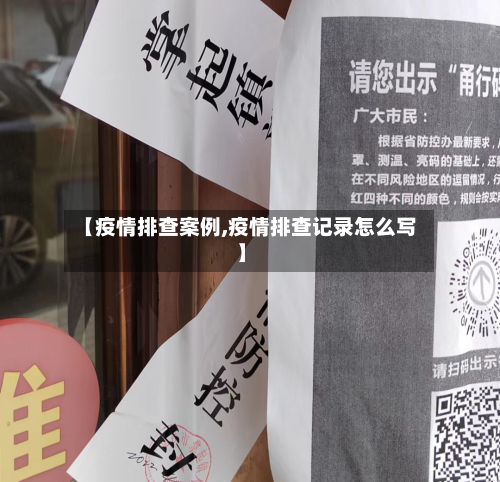 掌起镇
请您出示“甬行码
广大市民：
根据省防控办最新要求，
罩、测温、亮码的基础上，还
在不同风险地区的逗留情况，行
红四种不同的颜色，规则会按实
【疫情排查案例,疫情排查记录怎么写
】
情防控
请扫码出示
封
2022
准